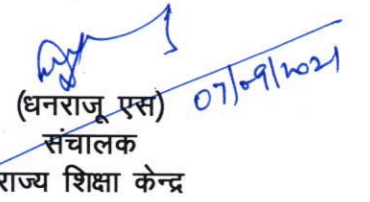 07/09/2021
(धनराजू एस)
संचालक
राज्य शिक्षा केन्द्र